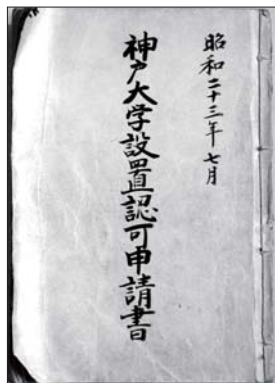 昭和二十三年七月
神戸大学設置認可申請書